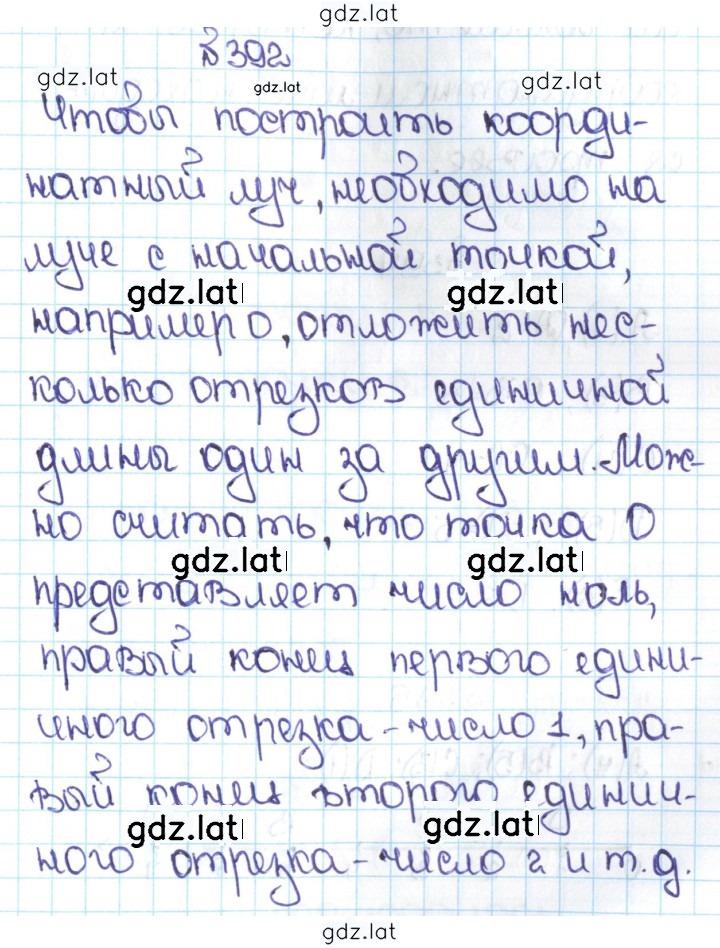 gdz.lat
№392
gdz.lat gdz.lat gdz.lat
Чтобы построить коорди-
натный луч, необходимо на
луче с начальной точкой,
gdz.lat gdz.lat
например О, отложить нес-
колько отрезков единичной
длины один за другим. Мож-
но считать, что точка О
gdz.lat gdz.lat
представляет число ноль,
правый конец первого едини-
чного отрезка - число 1, пра-
вый конец второго единич-
gdz.lat gdz.lat
ного отрезка - число 2 и т.д.
gdz.lat